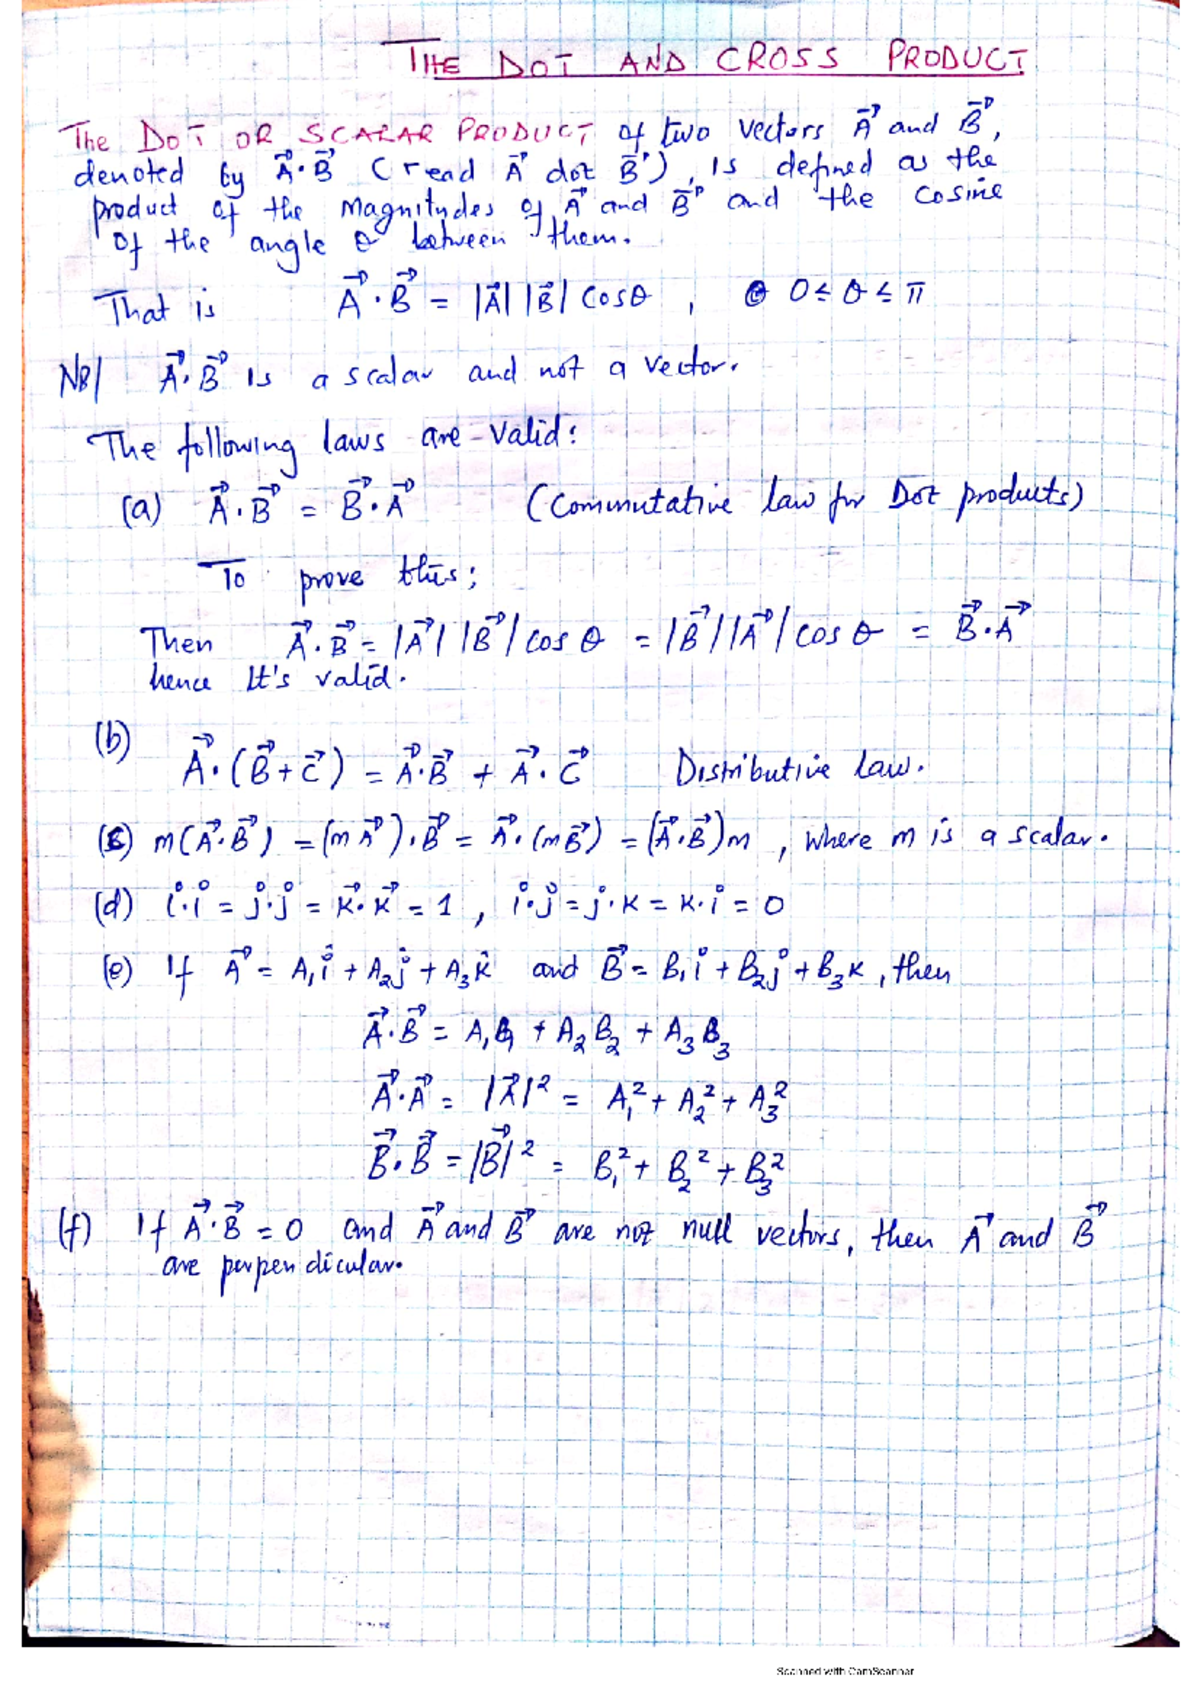 THE DOT AND CROSS PRODUCT
The DOT OR SCALAR PRODUCT of two vectors A⃗ and B⃗,
denoted by A⃗·B⃗ (read A⃗ dot B⃗), is defined as the
product of the magnitudes of A⃗ and B⃗ and the cosine
of the angle θ between them.
That is A⃗·B⃗ = |A⃗| |B⃗| cosθ , 0 ≤ θ ≤ π
NB/ A⃗·B⃗ is a scalar and not a vector.
The following laws are valid:
(a) A⃗·B⃗ = B⃗·A⃗ (Commutative law for Dot products)
To prove this;
Then A⃗·B⃗ = |A⃗| |B⃗| cos θ = |B⃗| |A⃗| cos θ = B⃗·A⃗
hence It's valid.
(b) A⃗·(B⃗+C⃗) = A⃗·B⃗ + A⃗·C⃗ Distributive law.
(c) m(A⃗·B⃗) = (mA⃗)·B⃗ = A⃗·(mB⃗) = (A⃗·B⃗)m , where m is a scalar.
(d) i·i = j·j = k⃗·k⃗ = 1 , i·j = j·k = k·i = 0
(e) If A⃗ = A₁i + A₂j + A₃k and B⃗ = B₁i + B₂j + B₃k , then
A⃗·B⃗ = A₁B₁ + A₂B₂ + A₃B₃
A⃗·A⃗ = |A⃗|² = A₁² + A₂² + A₃²
B⃗·B⃗ = |B⃗|² = B₁² + B₂² + B₃²
(f) If A⃗·B⃗ = 0 and A⃗ and B⃗ are not null vectors, then A⃗ and B⃗
are perpendicular.
Scanned with CamScanner